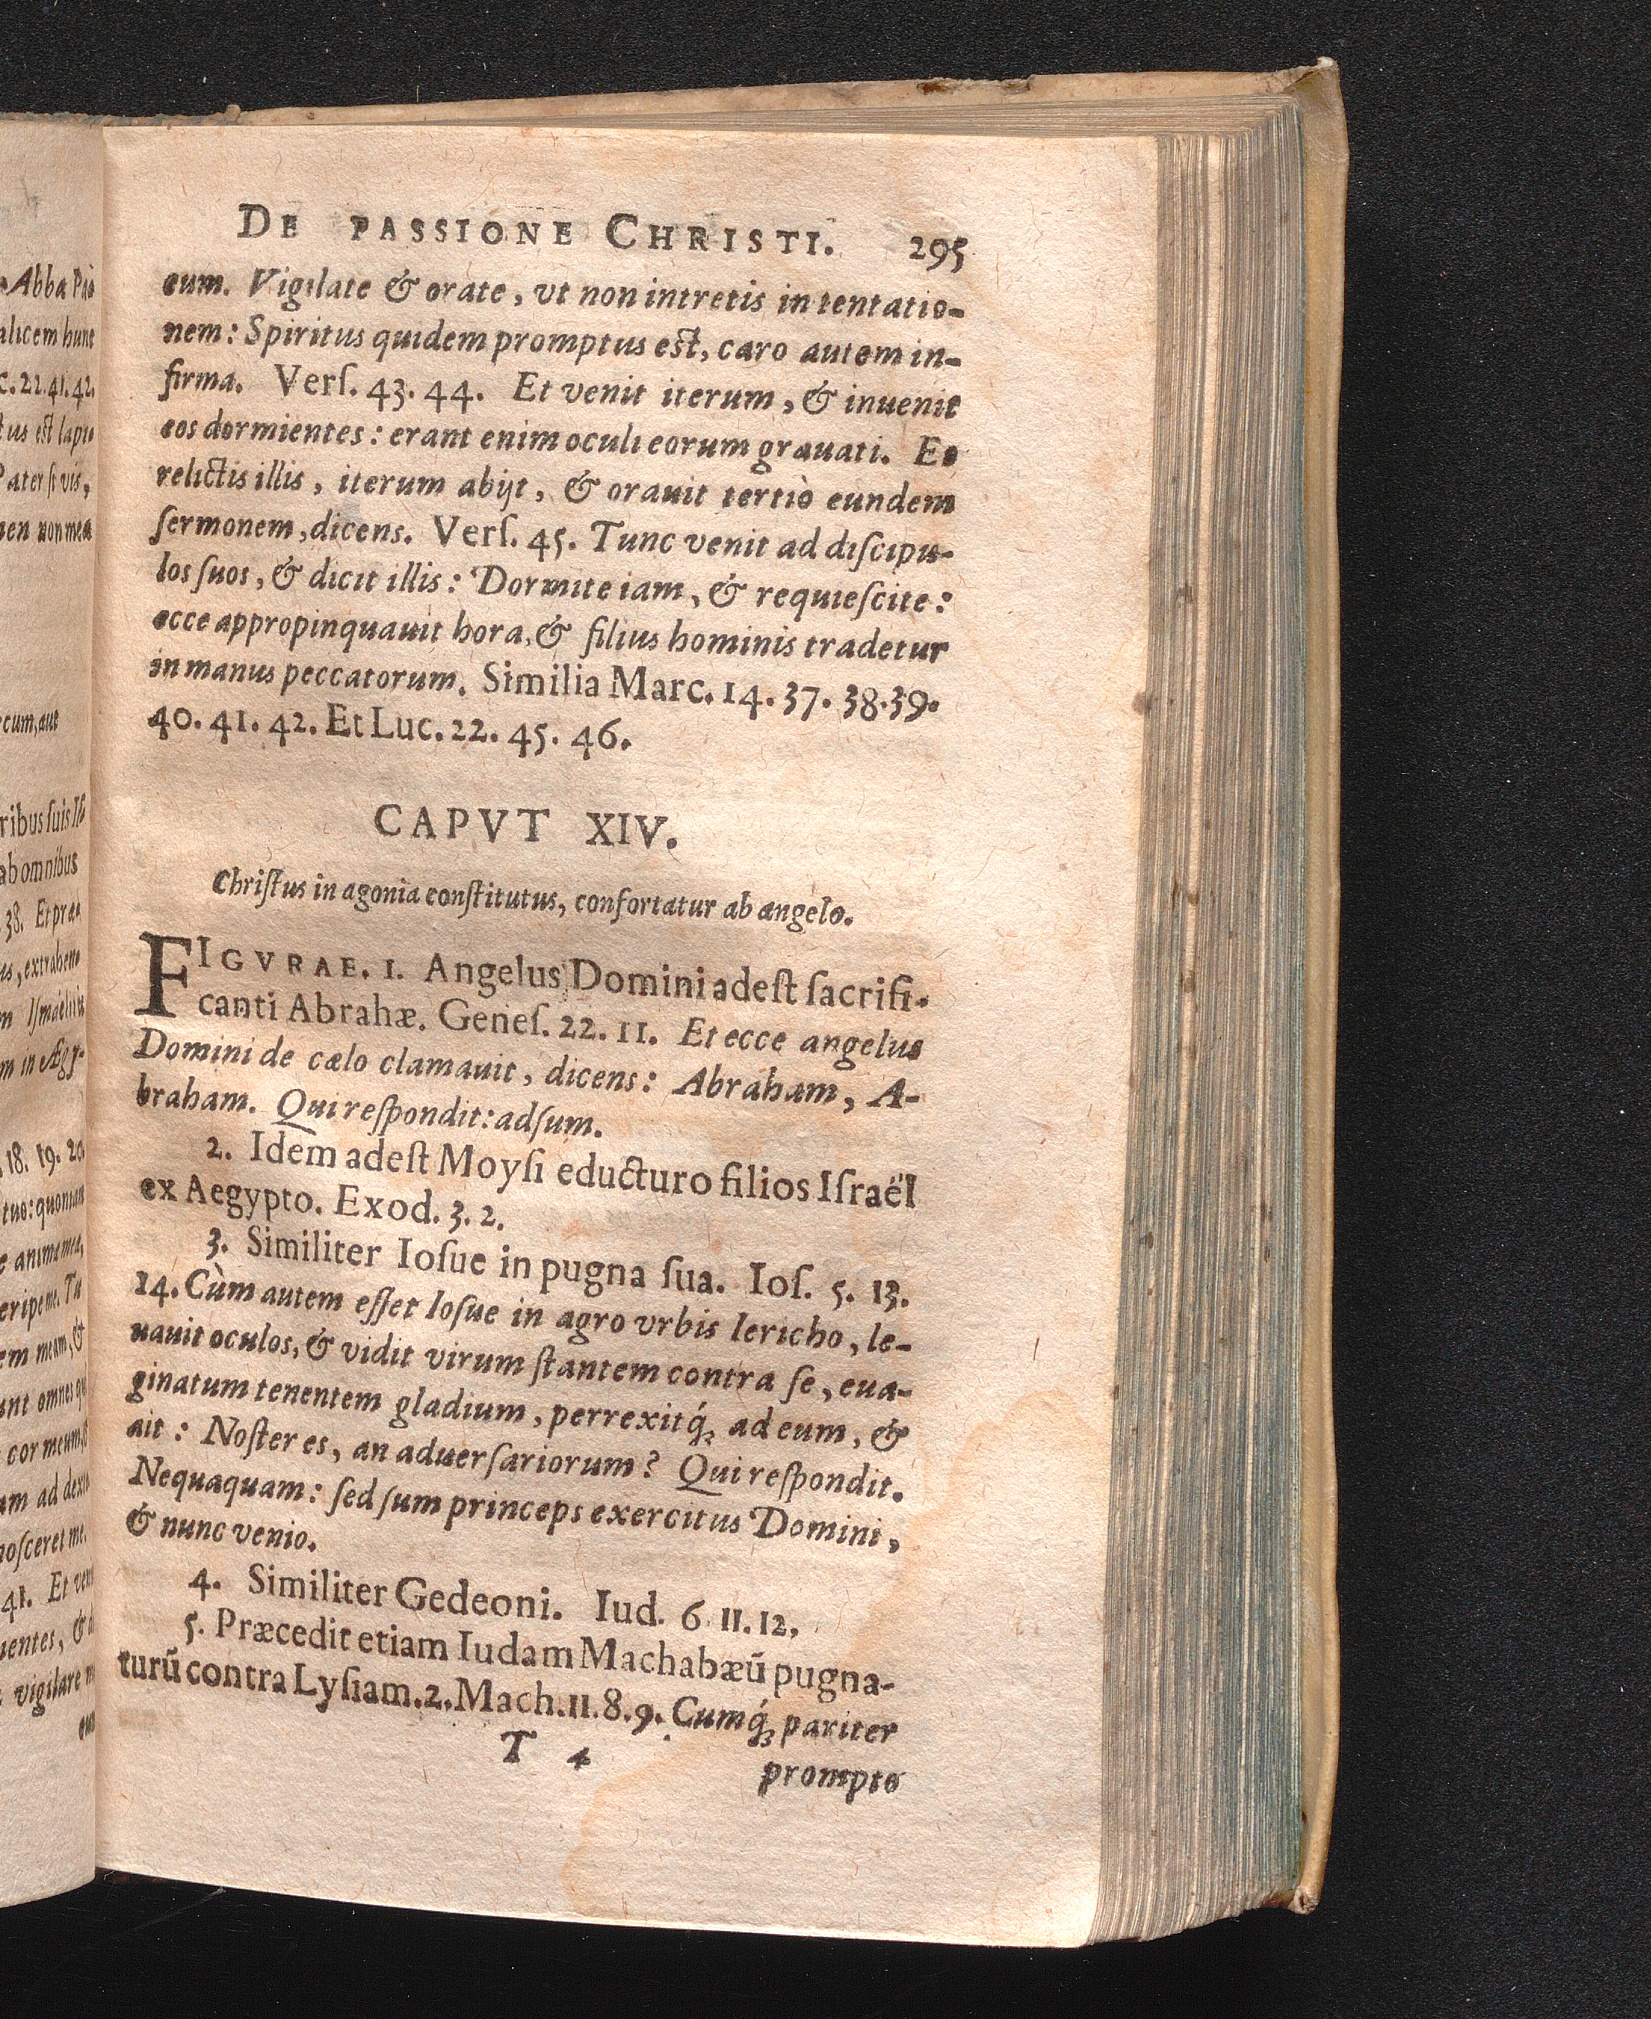 DE PASSIONE CHRISTI. 295
eum. Vigilate & orate, vt non intretis in tentatio-
nem: Spiritus quidem promptus est, caro autem in-
firma. Verſ. 43. 44. Et venit iterum, & inuenit
eos dormientes: erant enim oculi eorum grauati. Et
relictis illis, iterum abijt, & orauit tertiò eundem
ſermonem, dicens. Verſ. 45. Tunc venit ad diſcipu-
los ſuos, & dicit illis: Dormite iam, & requieſcite:
ecce appropinquauit hora, & filius hominis tradetur
in manus peccatorum. Similia Marc. 14. 37. 38. 39.
40. 41. 42. Et Luc. 22. 45. 46.
CAPVT XIV.
Chriſtus in agonia conſtitutus, confortatur ab angelo.
FIGVRAE. 1. Angelus Domini adeſt ſacrifi-
canti Abrahæ. Geneſ. 22. 11. Et ecce angelus
Domini de cælo clamauit, dicens: Abraham, A-
braham. Qui reſpondit: adſum.
2. Idem adeſt Moyſi educturo filios Iſraël
ex Aegypto. Exod. 3. 2.
3. Similiter Ioſue in pugna ſua. Ioſ. 5. 13.
14. Cùm autem eſſet Ioſue in agro vrbis Iericho, le-
uauit oculos, & vidit virum ſtantem contra ſe, eua-
ginatum tenentem gladium, perrexitq́; ad eum, &
ait: Noſter es, an aduerſariorum? Qui reſpondit.
Nequaquam: ſed ſum princeps exercitus Domini,
& nunc venio.
4. Similiter Gedeoni. Iud. 6. 11. 12.
5. Præcedit etiam Iudam Machabæū pugna-
turū contra Lyſiam. 2. Mach. 11. 8. 9. Cumq́; pariter
T 4 prompto